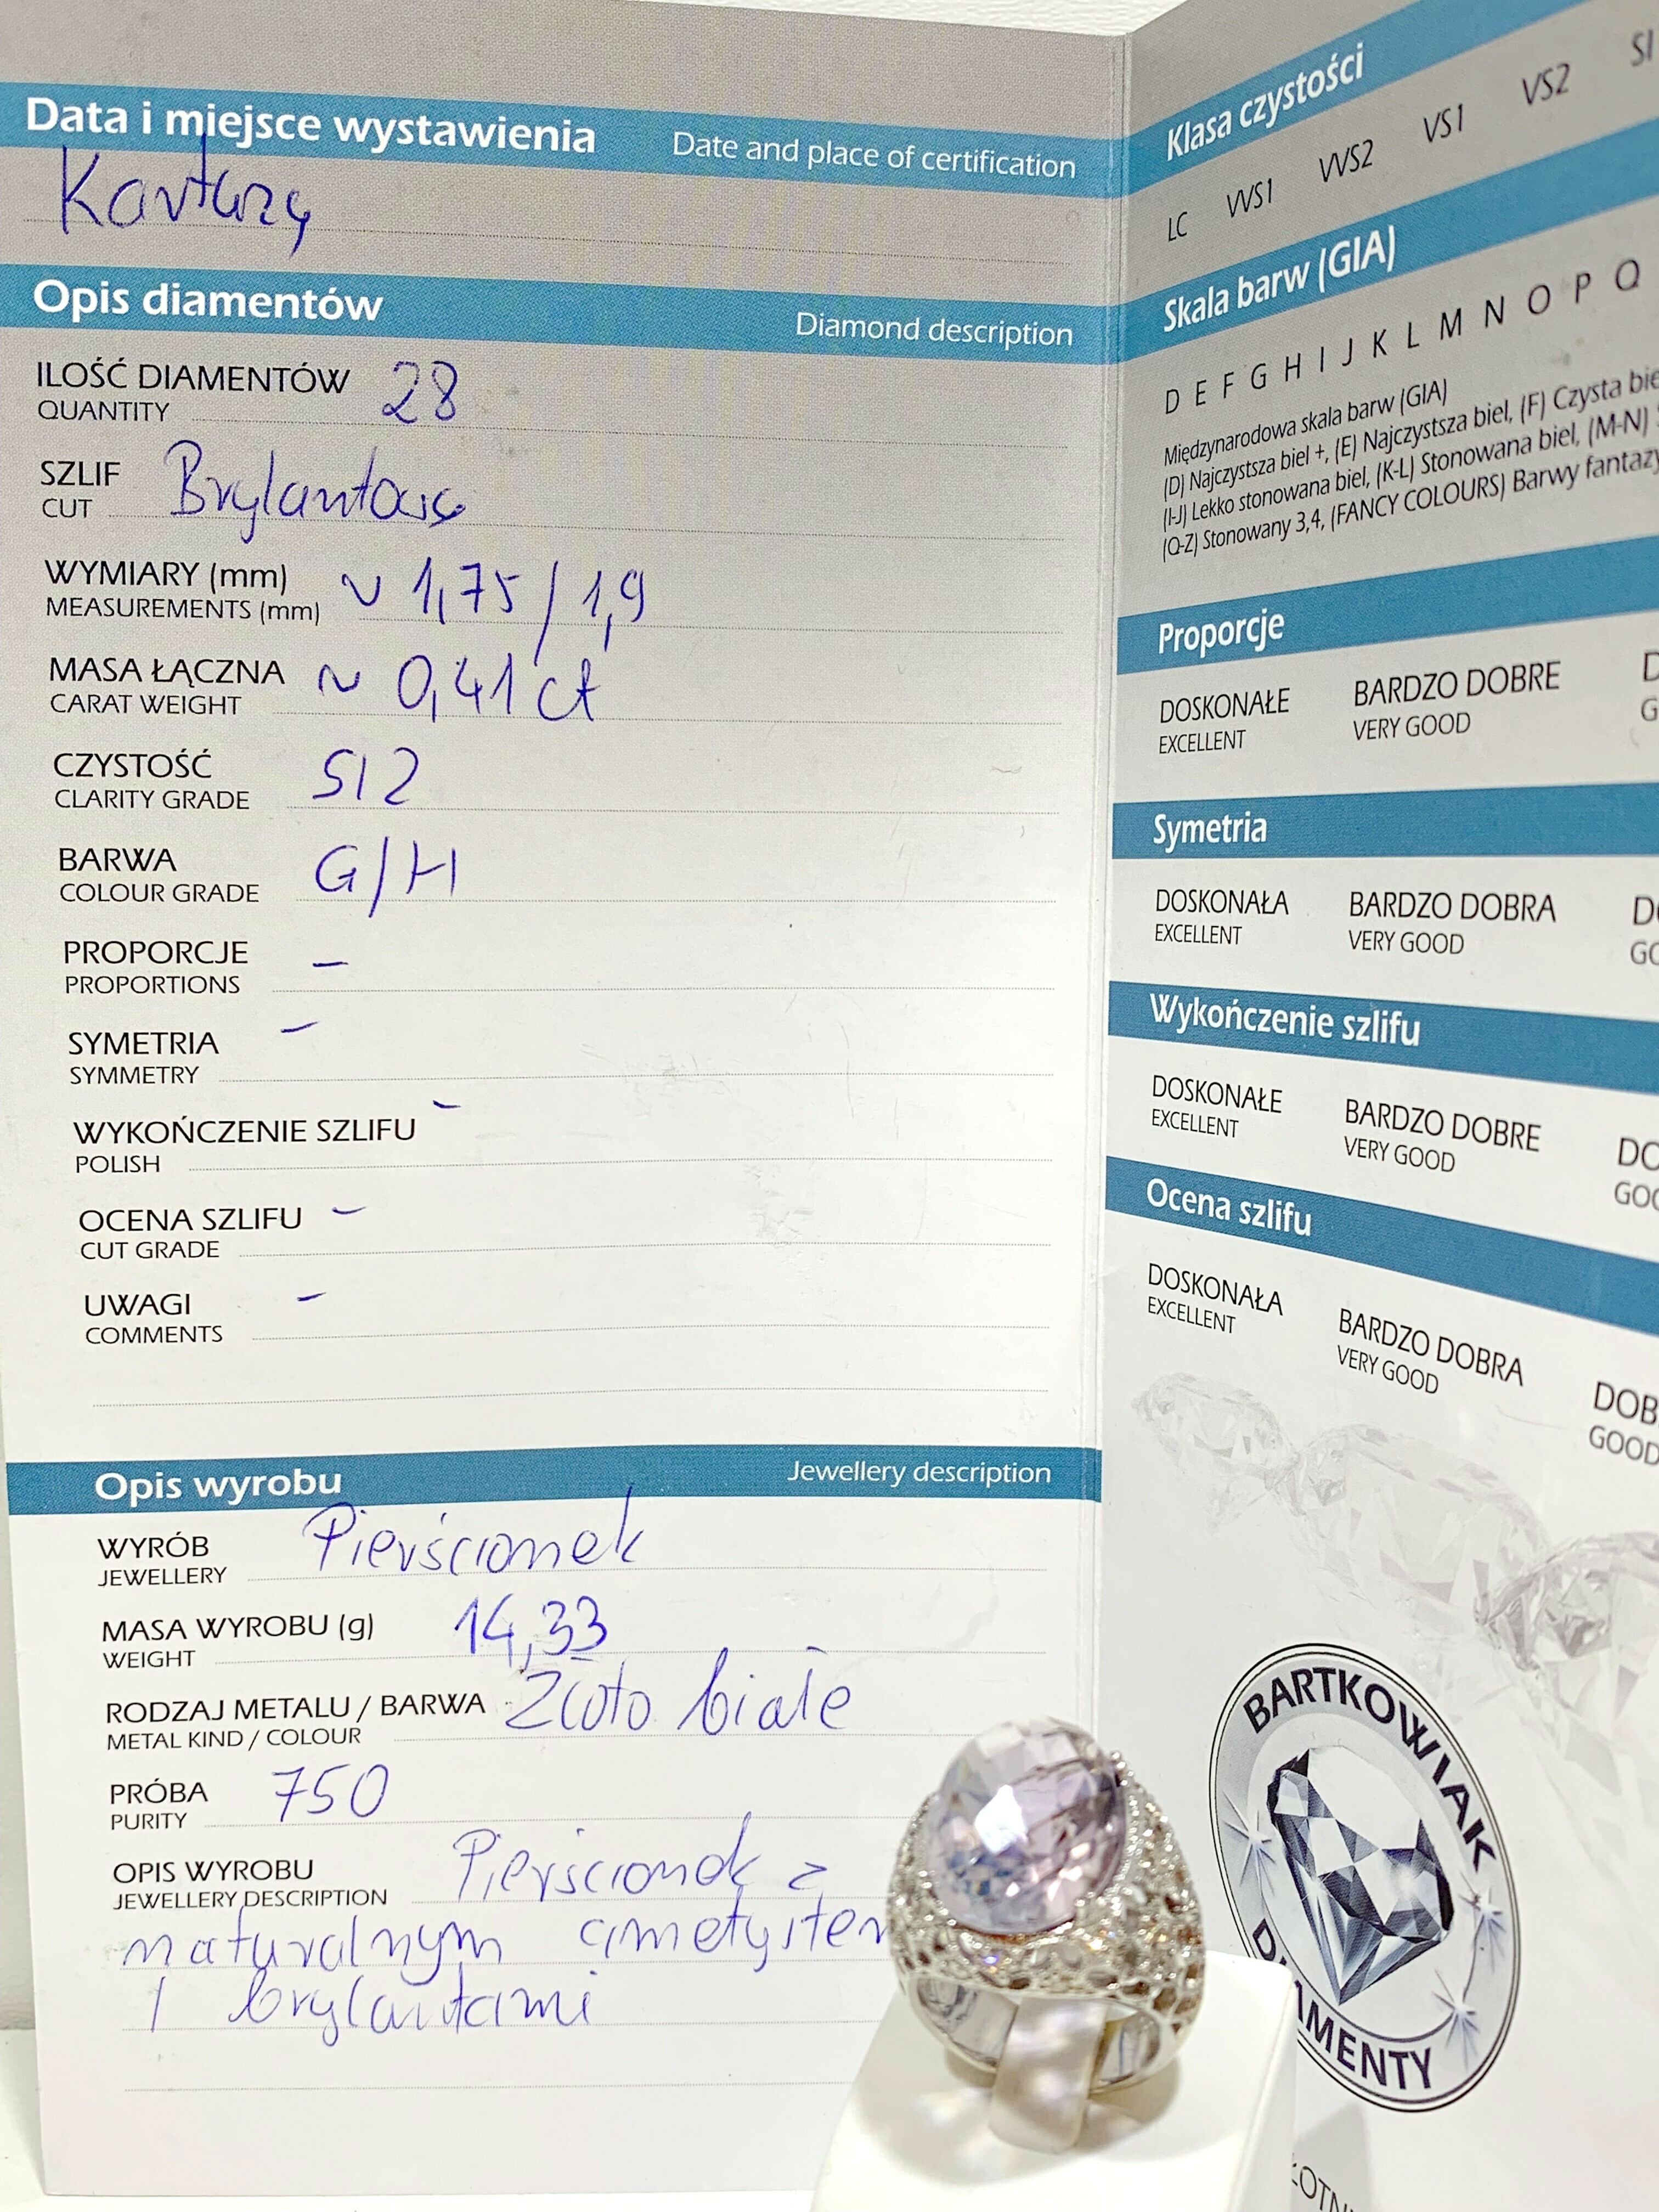 Data i miejsce wystawienia Date and place of certification
Kartuzy
Opis diamentów Diamond description
ILOŚĆ DIAMENTÓW 28
QUANTITY
SZLIF Brylantowy
CUT
WYMIARY (mm) ~ 1,75 / 1,9
MEASUREMENTS (mm)
MASA ŁĄCZNA ~ 0,41 ct
CARAT WEIGHT
CZYSTOŚĆ SI2
CLARITY GRADE
BARWA G/H
COLOUR GRADE
PROPORCJE –
PROPORTIONS
SYMETRIA –
SYMMETRY
WYKOŃCZENIE SZLIFU –
POLISH
OCENA SZLIFU –
CUT GRADE
UWAGI –
COMMENTS
Opis wyrobu Jewellery description
WYRÓB Pierścionek
JEWELLERY
MASA WYROBU (g) 14,33
WEIGHT
RODZAJ METALU / BARWA Złoto białe
METAL KIND / COLOUR
PRÓBA 750
PURITY
OPIS WYROBU Pierścionek z
JEWELLERY DESCRIPTION
naturalnym ametystem
i brylantami
Klasa czystości
LC VVS1 VVS2 VS1 VS2 SI
Skala barw (GIA)
D E F G H I J K L M N O P Q
Międzynarodowa skala barw (GIA)
(D) Najczystsza biel +, (E) Najczystsza biel, (F) Czysta bie
(I-J) Lekko stonowana biel, (K-L) Stonowana biel, (M-N)
(Q-Z) Stonowany 3,4, (FANCY COLOURS) Barwy fantazy
Proporcje
DOSKONAŁE BARDZO DOBRE D
EXCELLENT VERY GOOD G
Symetria
DOSKONAŁA BARDZO DOBRA D
EXCELLENT VERY GOOD GO
Wykończenie szlifu
DOSKONAŁE BARDZO DOBRE DO
EXCELLENT VERY GOOD GOO
Ocena szlifu
DOSKONAŁA BARDZO DOBRA DOB
EXCELLENT VERY GOOD GOOD
BARTKOWIAK
DIAMENTY